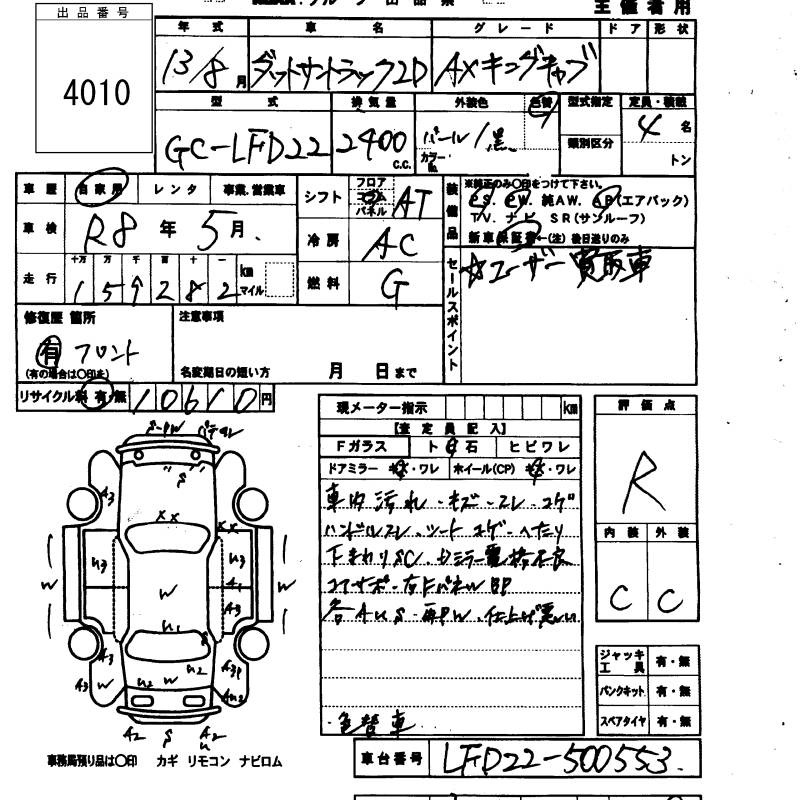 主催者用
出品番号
4010
年式 車名 グレード ドア 形状
13/8月 ダットサントラック2D AXキングキャブ
型式 排気量 外装色 色替 型式指定 定員・積載
GC-LFD22 2400 c.c. パール/黒 カラーNo. 類別区分 4名
トン
車歴 自家用 レンタ 事業、営業車
車検 R8年5月
走行 十万 万 千 百 十 一
159282 km マイル
シフト フロア コラム パネル AT
冷房 AC
燃料 G
装備品 ※純正のみ○印をつけて下さい。
PS. PW. 純AW. AB(エアバック)
TV. ナビ SR(サンルーフ)
新車保証書←(注) 後日送りのみ
セールスポイント
☆ユーザー買取車
修復歴 箇所
有 フロント
(有の場合は○印を)
注意事項
名変期日の短い方 月 日まで
リサイクル料 有・無 10610円
現メーター指示 km
【査定員記入】
Fガラス ト 石 ヒビワレ
ドアミラー キズ・ワレ ホイール(CP) キズ・ワレ
車内汚れ・キズ・スレ・コゲ
ハンドルスレ、シートコゲ・ヘたり
下まわりSC、
右Fパネル
各AUS・再PW、仕上げ悪い
・色替車
評価点
R
内装 外装
C C
ジャッキ 工具 有・無
パンクキット 有・無
スペアタイヤ 有・無
A3 S A3
XX XX
U3 U3
W W W
A1
A3
U1 S
A3 A3 W U2 U2 A3P AU2
A2 S A2 U
事務局預り品は○印 カギ リモコン ナビロム
車台番号 LFD22-500553